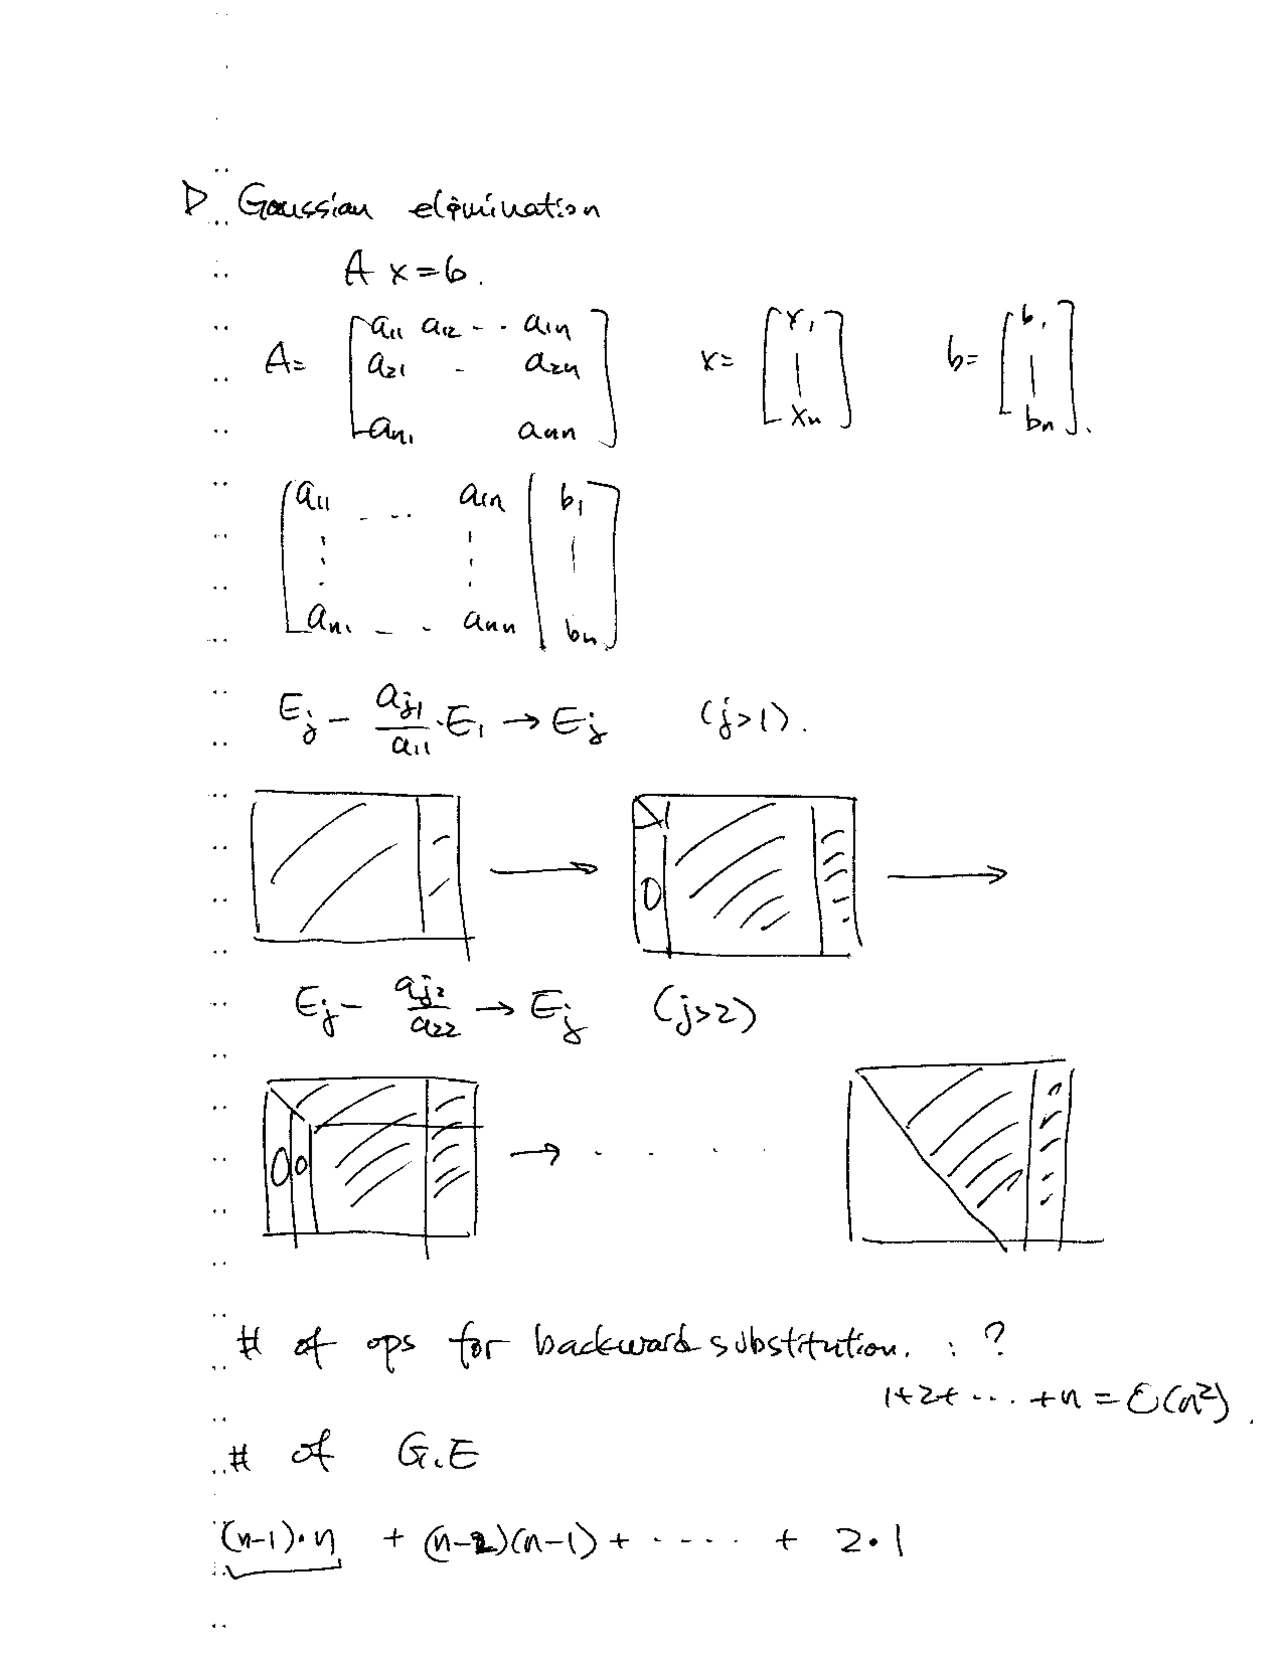 ▷ Gaussian elimination
A x = b.
A = [ a₁₁ a₁₂ - - a₁ₙ ; a₂₁ - a₂ₙ ; aₙ₁ aₙₙ ]   x = [ x₁ | xₙ ]   b = [ b₁ | bₙ ].
[ a₁₁ - - - a₁ₙ | b₁ ]
[ aₙ₁ - - aₙₙ | bₙ ]
Eⱼ - aⱼ₁/a₁₁ · E₁ → Eⱼ   (j>1).
0
Eⱼ - aⱼ₂/a₂₂ → Eⱼ   (j>2)
0 0 → · · · ·
# of ops for backward substitution. : ?
1+2+ ··· +n = O(n²).
# of G.E
(n-1)·n + (n-2)(n-1) + ····· + 2·1